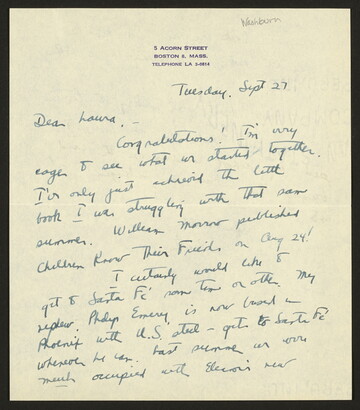 Washburn
5 ACORN STREET
BOSTON 8, MASS.
TELEPHONE LA 3-0814
Tuesday, Sept 27
Dear Laura, -
Congratulations! I'm very
eager to see what we started together.
I've only just achieved the little
book I was struggling with that same
summer. William Morrow published
Children Know Their Friends on Aug 24!
I certainly would like to
get to Santa Fé some time or other. My
nephew, Philip Emery is now based in
Phoenix with U.S. Steel - gets to Santa Fé
whenever he can. Last summer we were
much occupied with Eleanor's new